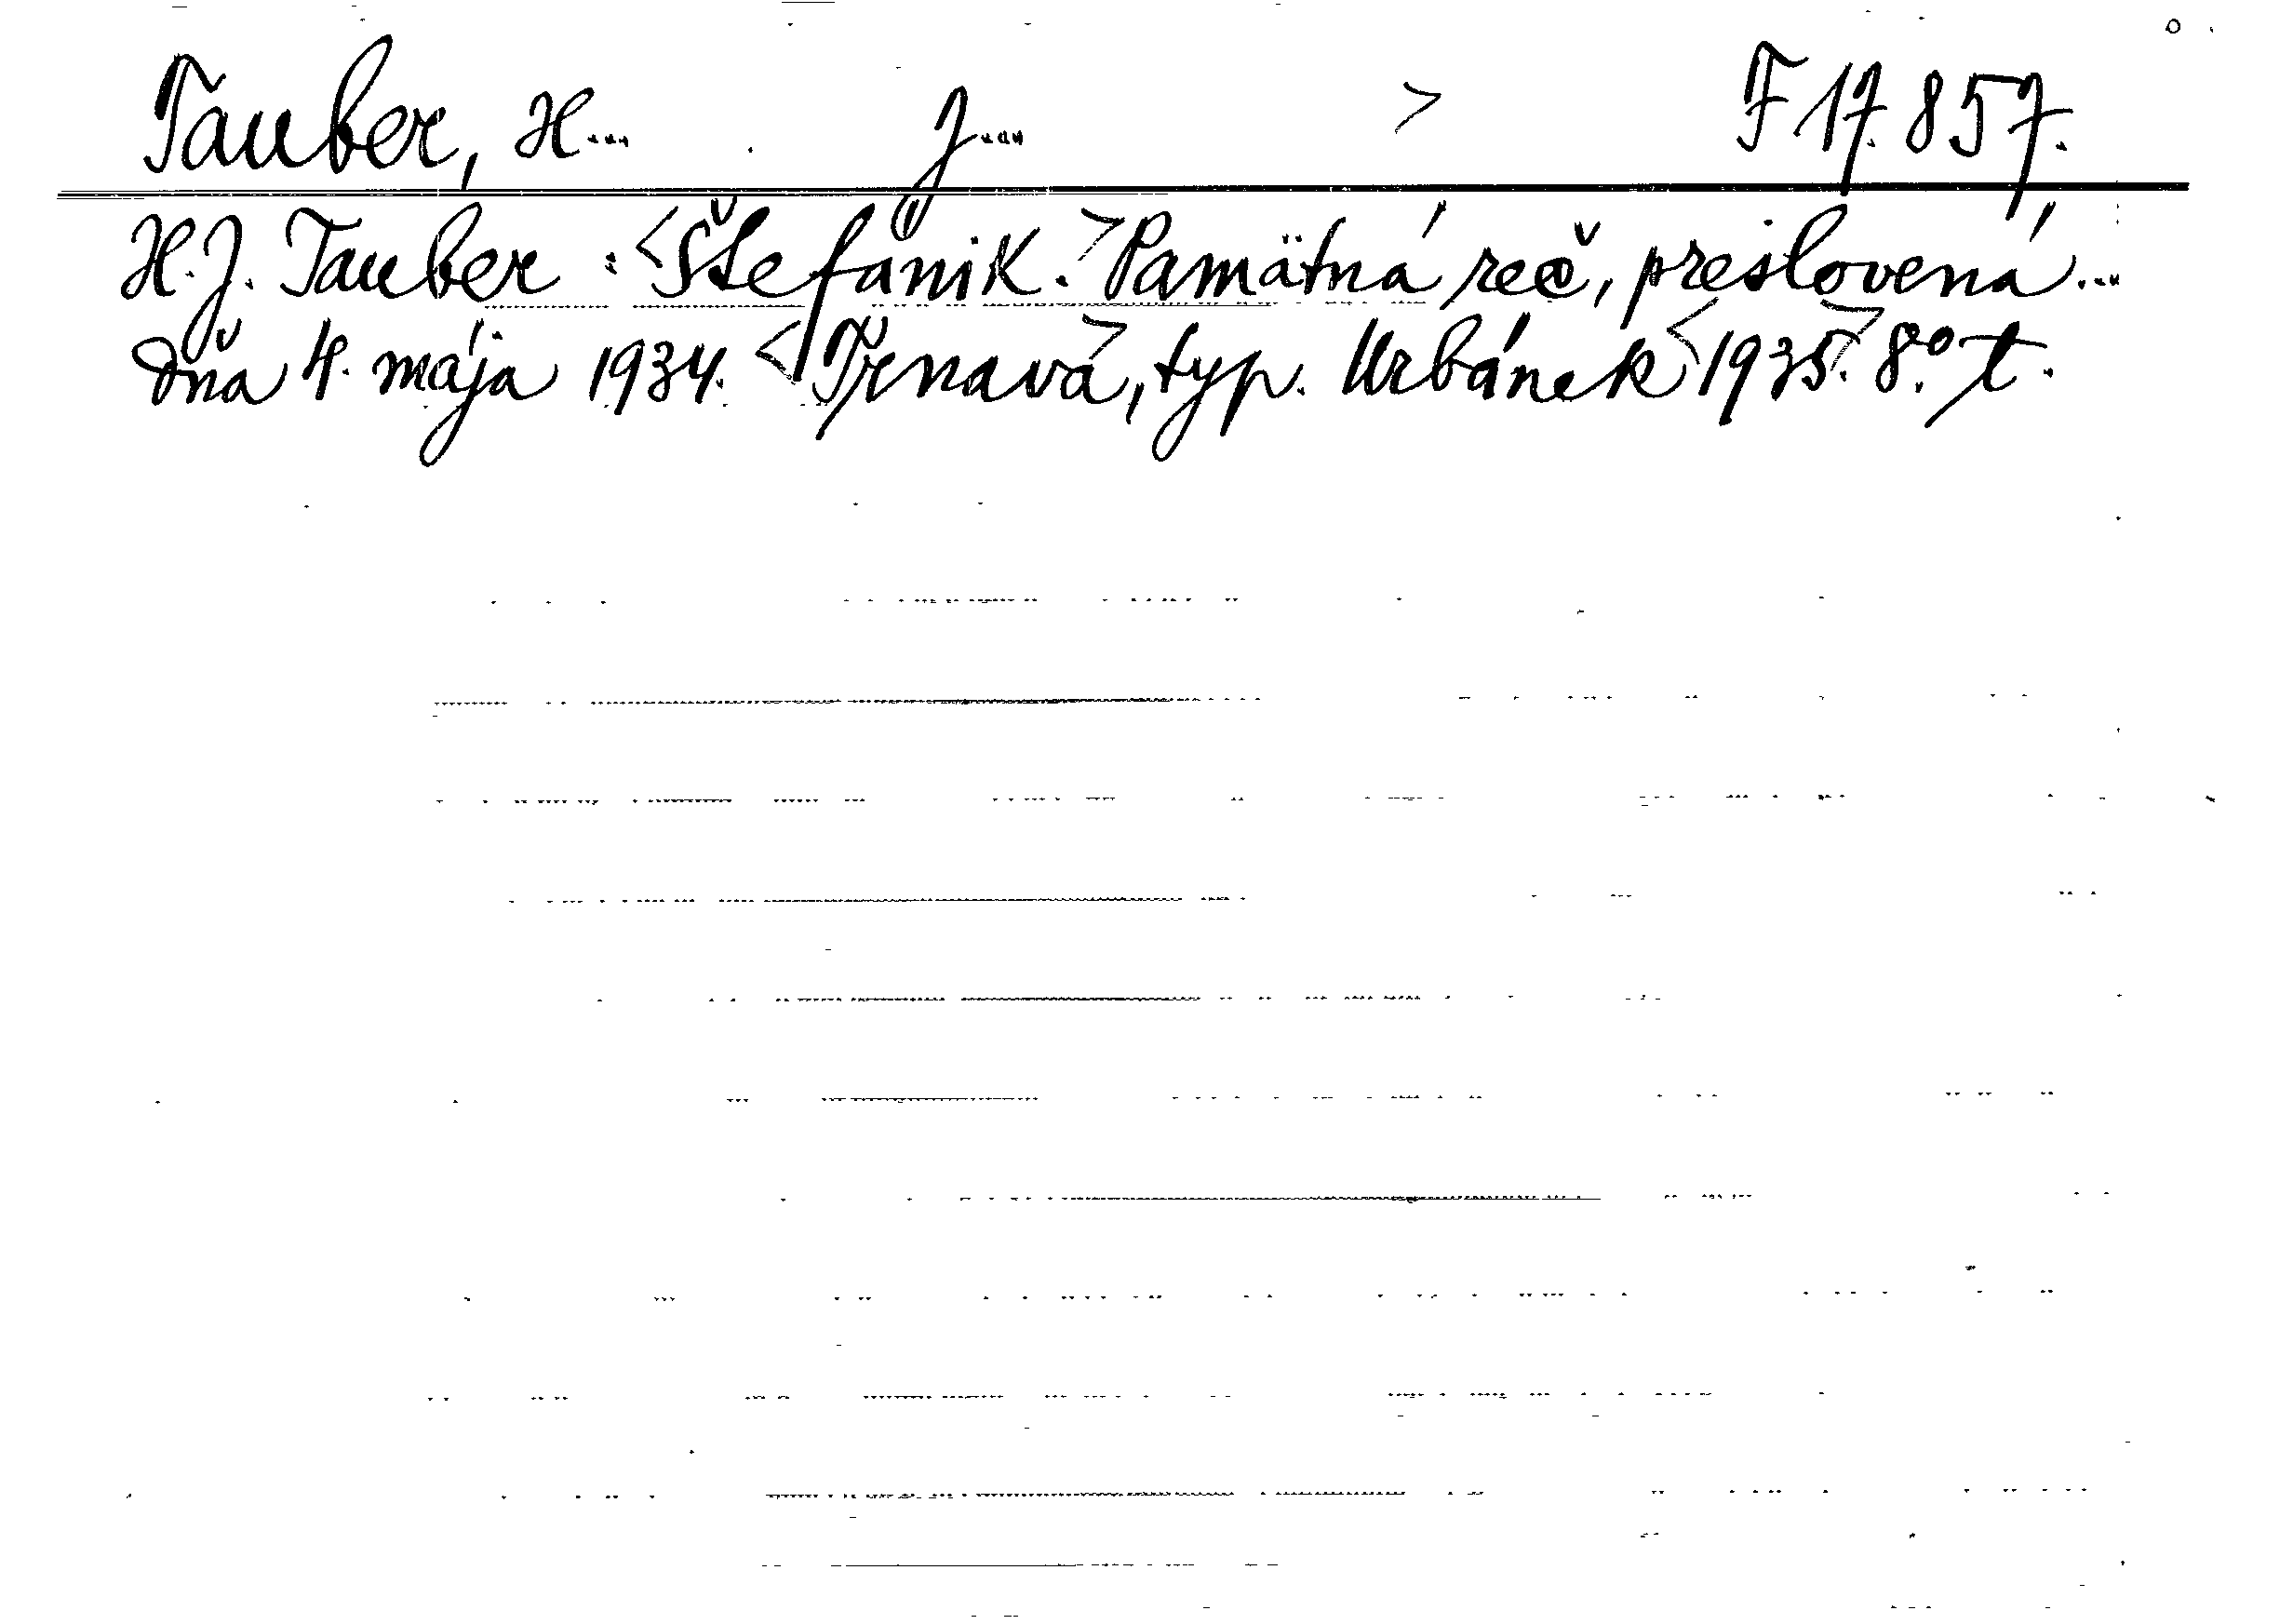 Tauber, H... J... > F 17.857.
H. J. Tauber: <Štefanik.> Pamätná reč, preslovená...
dňa 4. mája 1934. <Trnava>, typ. Urbánek <1935.> 8º. t.